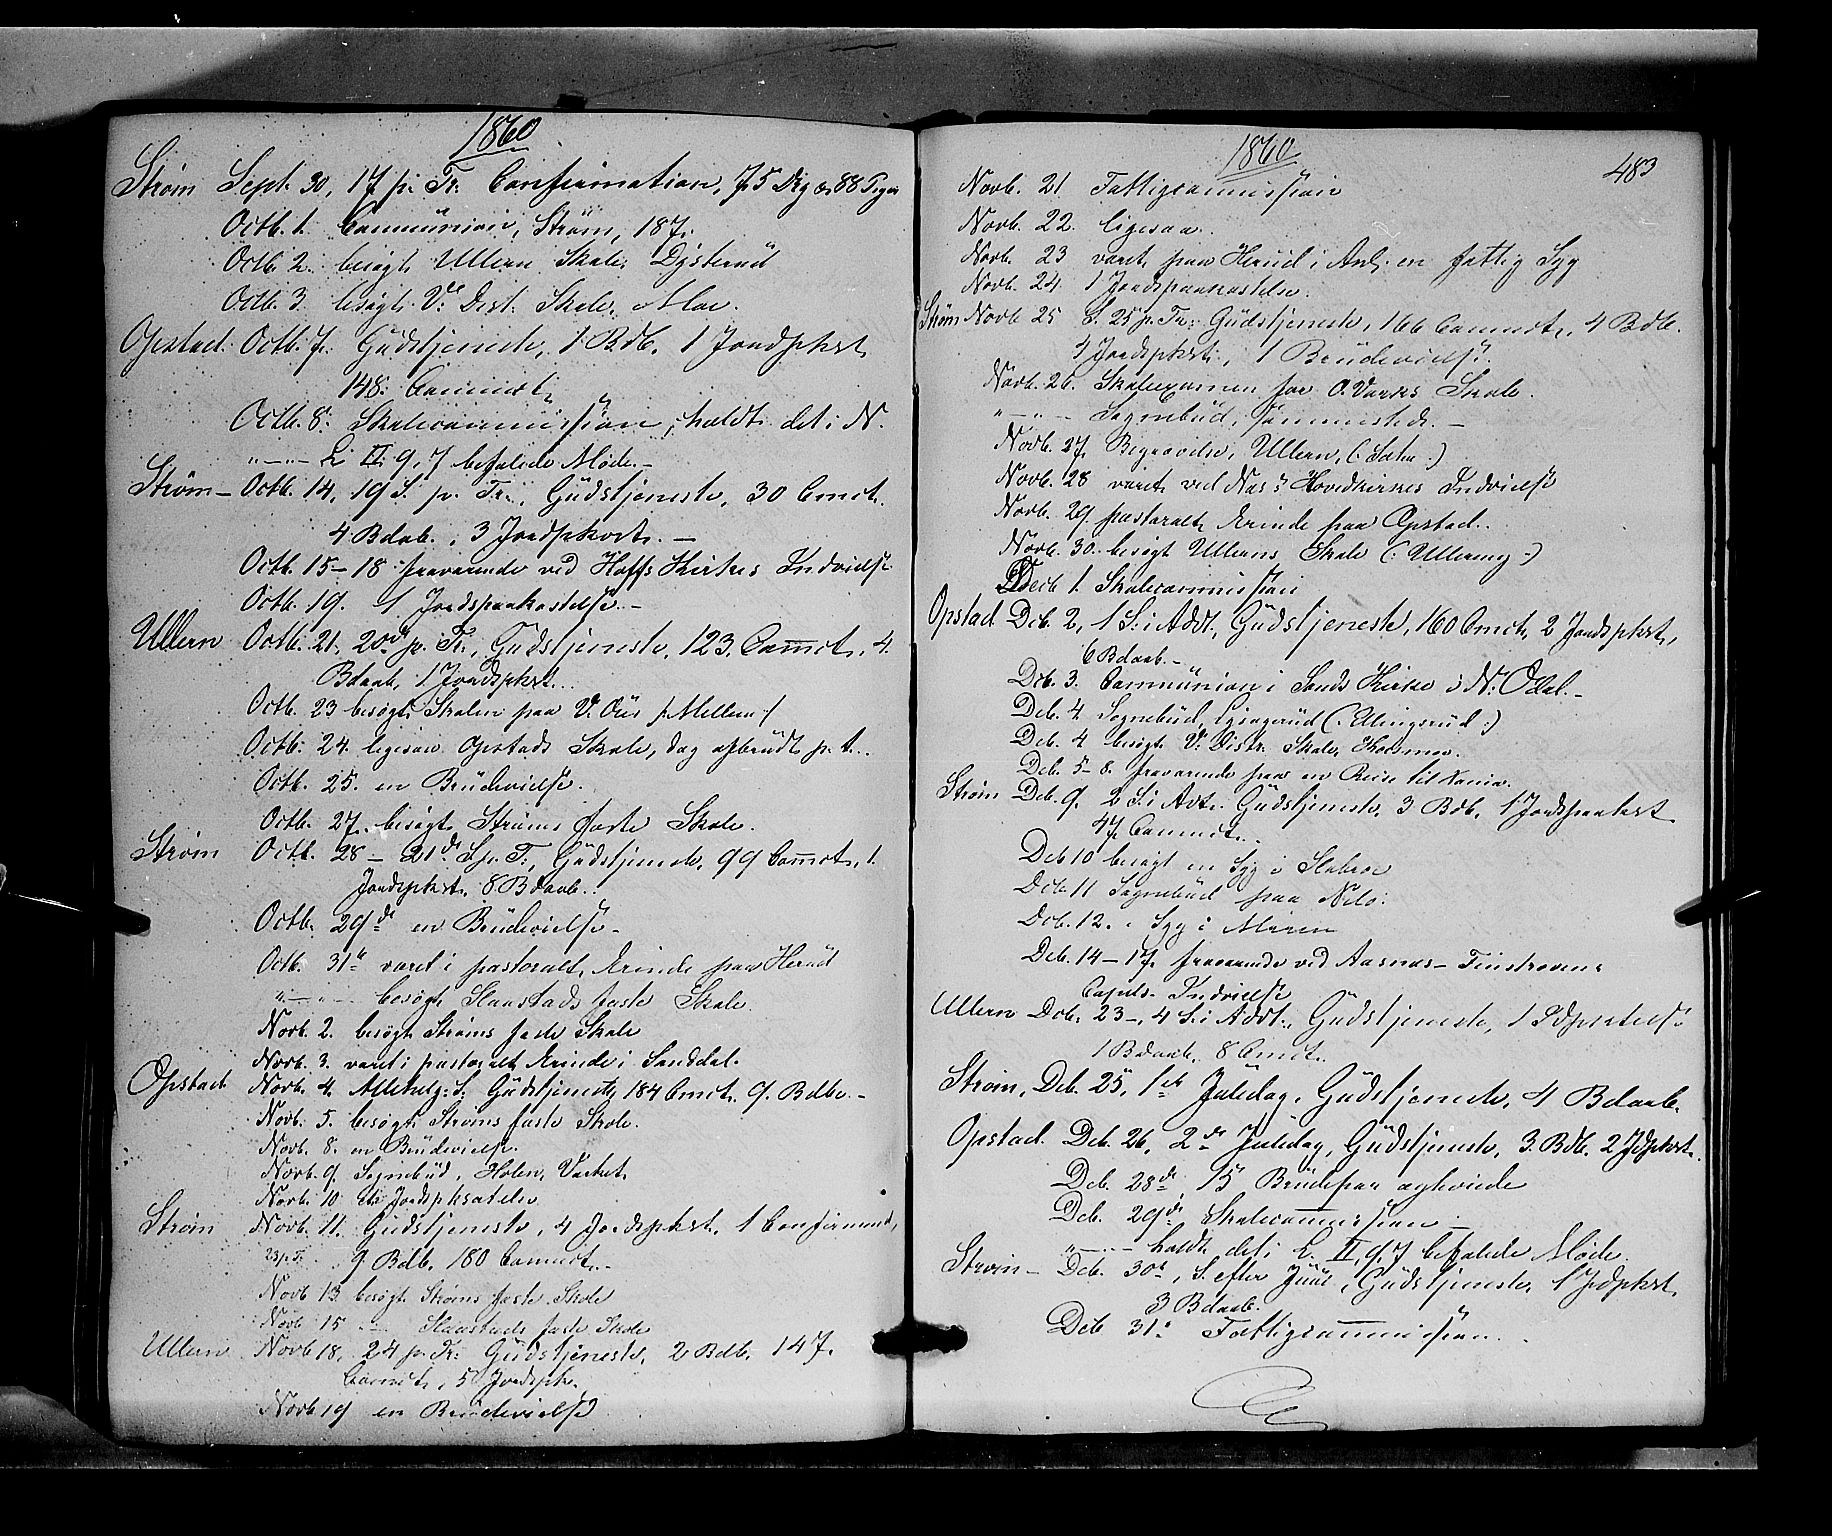 1860
Strøm Sept. 30, 17 p. Tr. Confirmation, 75 Drg og 88 Piger
Octb. 1. Communion, Strøm, 187.
Octb. 2. besøgt Ullern Skole, Dysterud
Octb. 3. besøgt V. Dist. Skole, Moe.
Opstad. Octb. 7. Gudstjeneste, 1 Bdb. 1 Jordpkst
148. Communt.
Octb. 8. Skolecommission, holdt det i N.
"—"— L. II. 9, 7 befalede Møde.—
Strøm— Octb. 14, 19 S. p. Tr., Gudstjeneste, 30 Cmct.
4 Bdaab., 3 Jordpkst. —
Octb. 15–18 fraværende ved Hoffs Kirkes Indvielse
Octb. 19. 1 Jordspaakastelse.—
Ullern Octb. 21, 20de p. Tr., Gudstjeneste, 123. Commct. 4.
Bdaab, 1 Jordspkst..
Octb. 23 besøgt Skolen paa V. Ous /: Mellem :/
Octb. 24. ligesaa Opstads Skole, dog afbrudt p. t..
Octb. 25. en Brudevielse.
Octb. 27. besøgt Strøms faste Skole.
Strøm Octb. 28 — 21de S. p. T., Gudstjeneste, 99 Commct. 1.
Jordspkst. 8 Bdaab..
Octb. 29de en Brudevielse.—
Octb. 31te været i pastoralt Ærinde paa Herud
"—"— besøgt Slaastads faste Skole.
Novb. 2. besøgt Strøms faste Skole
Novb. 3. været i pastoralt Ærinde i Sanddal.
Opstad Novb. 4. Allehelg: S. Gudstjeneste, 184 Cmct. 9. Bdb.—
Novb. 5. besøgt Strøms faste Skole.
Novb. 8. en Brudevielse.
Novb. 9. Sognebud, Holen,Værket.
Novb. 10. Jordspkastelse
Strøm Novb. 11. Gudstjeneste, 4 Jordspkst. 1 Confirmand,
23 p. Tr. 9 Bdb. 180 Communt..
Novb 13 besøgt Strøms faste Skole
Novb 15 — Slaastads faste Skole
Ullern Novb 18, 24 p. Tr. Gudstjeneste, 2 Bdb, 147.
Commct, 5 Jordspk.
Novb 19 en Brudevielse
1860
483
Novb. 21. Fattigcommission
Novb. 22. ligesaa.
Novb. 23 været paa Herud i Anl. en fattig Syg
Novb. 24 1 Jordspaakastelse.
Strøm Novb 25 S. 25 p. Tr: Gudstjeneste, 166 Commct, 4 Bdb.
4 Jordspkst, 1 Brudevielse.
Novb. 26. Skoleexamen for O. Værkes Skole.
"—"— Sognebud, sammesteds.—
Novb. 27. Begravelse, Ullern, (: :)
Novb. 28 været ved Næs's Hovedkirkes Indvielse
Novb. 29. pastoralt Ærinde paa Opstad..
Novb. 30. besøgt Ullerns Skole (: Ullereng :)
Decb 1. Skolecommission
Opstad Dcb. 2, 1 S. i Advt., Gudstjeneste, 160 Cmct, 2 Jordspkst,
6 Bdaab.—
Dcb. 3. Communion i Sands Kirke i N. Odal.—
Dcb. 4. Sognebud, (: :)
Dcb. 4 besøgt V. Distr. Skole,
Dcb. 5–8. fraværende paa en Reise til Xania.
Strøm Dcb. 9. 2 S. i Advt. Gudstjeneste, 3 Bdb, 1 Jordspaakst
47. Communt..
Dcb 10 besøgt en Syg i
Dcb. 11 Sognebud paa
Dcb. 12. " Syg i Moren
Dcb. 14–17. fraværende ved Aasnæs–Finskovens
Capels Indvielse
Ullern Dcb. 23–, 4 S. i Advt., Gudstjeneste, 1
1 Bdaab, 8 Cmct.
Strøm, Dcb. 25, 1ste Juledag, Gudstjeneste, 4 Bdaab.
Opstad. Dcb. 26, 2den Juledag, Gudstjeneste, 3. Bdb. 2 Jdpkst.
Dcb. 28de, 15 Brudepar ægteviede
Dcb. 29de Skolecommission—
"—"— holdt det i L. II, 9, 7 befalede Møde.
Strøm— Dcb. 30te, S. efter Juul, Gudstjeneste, 1 Jdpkst,
3 Bdaab.
Dcb 31te Fattigcommission.